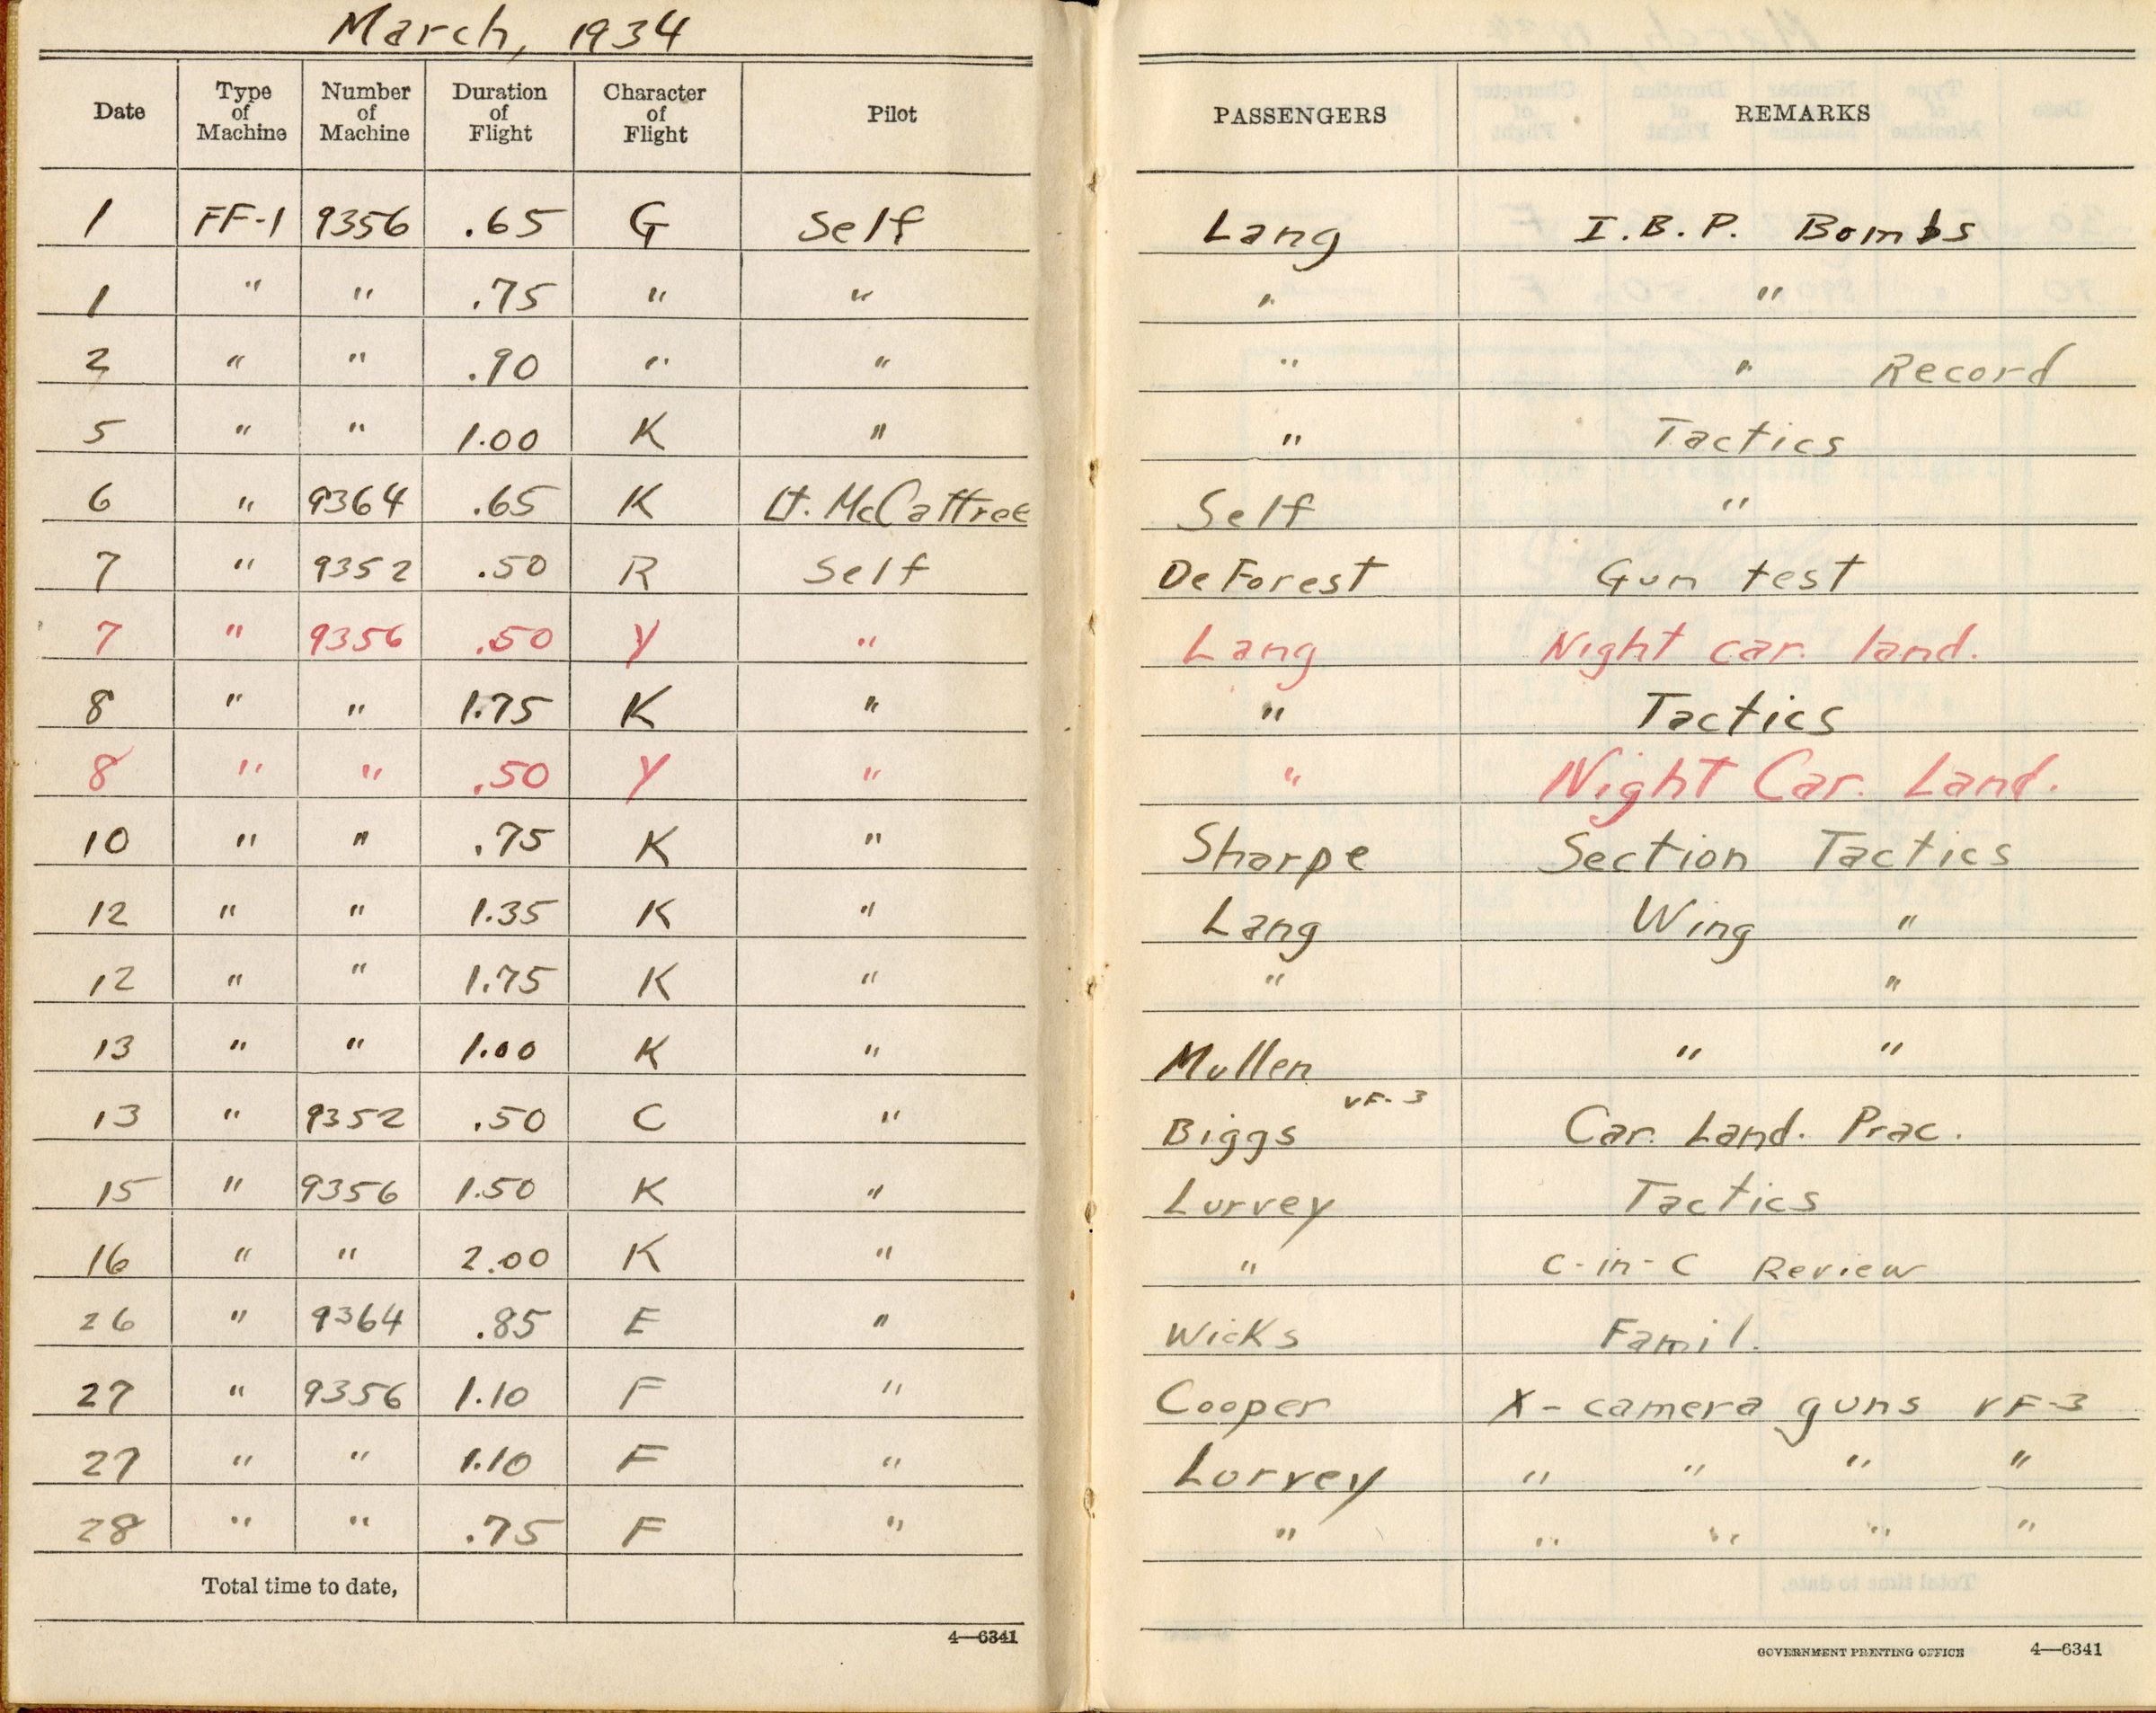 March, 1934
Date Type of Machine Number of Machine Duration of Flight Character of Flight Pilot PASSENGERS REMARKS
1 FF-1 9356 .65 G Self Lang I.B.P. Bombs
1 " " .75 " " " "
2 " " .90 " " " " Record
5 " " 1.00 K " " Tactics
6 " 9364 .65 K Lt. McCaffree Self "
7 " 9352 .50 R Self DeForest Gun test
7 " 9356 .50 Y " Lang Night car. land.
8 " " 1.75 K " " Tactics
8 " " .50 Y " " Night Car. Land.
10 " " .75 K " Sharpe Section Tactics
12 " " 1.35 K " Lang Wing "
12 " " 1.75 K " " "
13 " " 1.00 K " Mullen " "
13 " 9352 .50 C " Biggs VF-3 Car. Land. Prac.
15 " 9356 1.50 K " Lurvey Tactics
16 " " 2.00 K " " C-in-C Review
26 " 9364 .85 E " Wicks Famil.
27 " 9356 1.10 F " Cooper X-camera guns VF-3
27 " " 1.10 F " Lurvey " " " "
28 " " .75 F " " " " " "
Total time to date,
4—6341
GOVERNMENT PRINTING OFFICE 4—6341